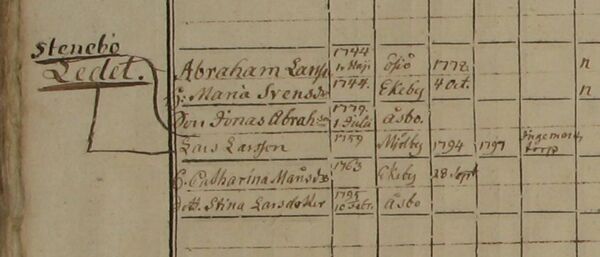 Stenebo
Ledet.
Abraham Larss 1744 1 Maji 1772. n
H: Maria Svensdr 1744. Ekeby 4 Oct. n
Son Jonas Abrahson 1779. 1 Julii åsbo.
Lars Larsson 1759 Mjölby 1794 1797 Ingemars torp
H. Catharina Månsdr 1763 Ekeby 28 Sept
dott. Stina Larsdotter 1795 10 Febr. åsbo